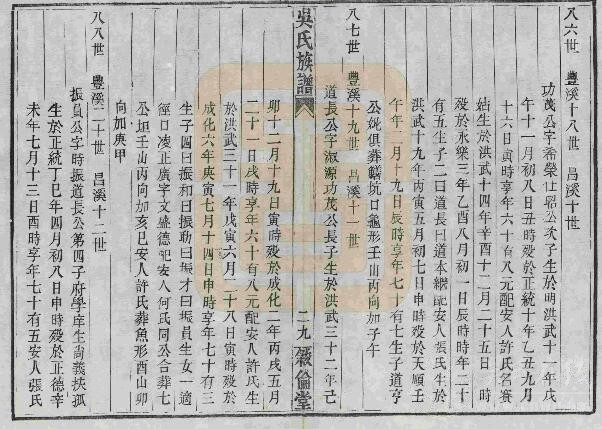 八六世 豐溪十八世 昌溪十世
功茂公字希榮仕紹公次子生於明洪武十一年戊
午十一月初八日丑時歿於正統十年乙丑九月
十六日寅時享年六十有八元配安人許氏名賽
姑生於洪武十四年辛酉十二月二十五日 時
歿於永樂三年乙酉八月初一日辰時年二十
有五生子二曰道長曰道本繼配安人張氏生於
洪武十九年丙寅五月初七日申時歿於天順壬
午年二月十九日辰時享年七十有七生子道亨
公妣俱葬 坑口龜形壬山丙向加子午
八七世 豐溪十九世 昌溪十一世
道長公字淑源功茂公長子生於洪武三十二年己
吳氏族譜
二九 敘倫堂
卯十二月十九日寅時歿於成化二年丙戌五月
二十一日戌時享年六十有八元配安人許氏生
於洪武三十一年戊寅六月二十八日寅時歿於
成化六年庚寅七月十四日申時享年七十有三
生子四曰振和曰振勃曰振才曰振員生女一適
徑口凌正廣字文盛德妃安人何氏同公合葬七
公坵壬山丙向加亥巳安人許氏葬魚形酉山卯
向加庚甲
八八世 豐溪二十世 昌溪十二世
振員公字時振道長公第四子府學庠生尚義挾孤
生於正統丁巳年四月初八日申時歿於正德辛
未年七月十三日酉時享年七十有五安人張氏